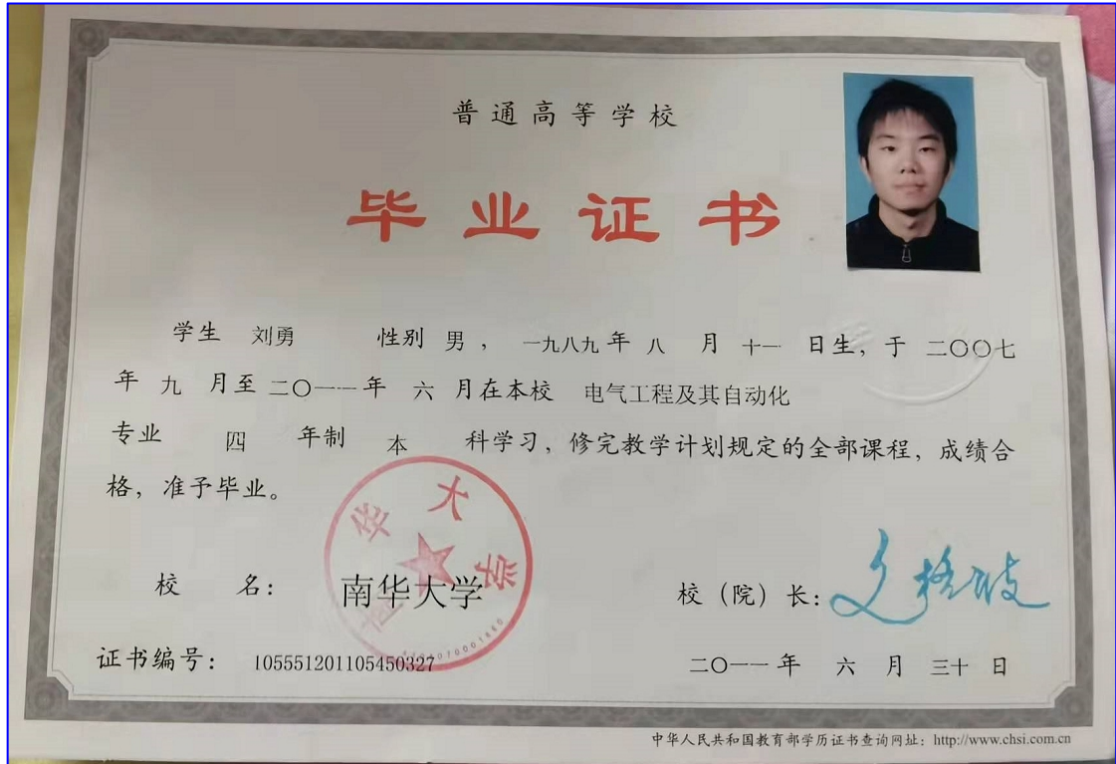 普通高等学校
毕业证书
学生 刘勇 性别 男 ， 一九八九 年 八 月 十一 日生，于 二〇〇七
年 九 月至 二〇一一 年 六 月在本校 电气工程及其自动化
专业 四 年制 本 科学习，修完教学计划规定的全部课程，成绩合
格，准予毕业。
南华大学
校 名： 南华大学
校（院）长：
证书编号： 105551201105450327
二〇一一 年 六 月 三十 日
中华人民共和国教育部学历证书查询网址：http://www.chsi.com.cn